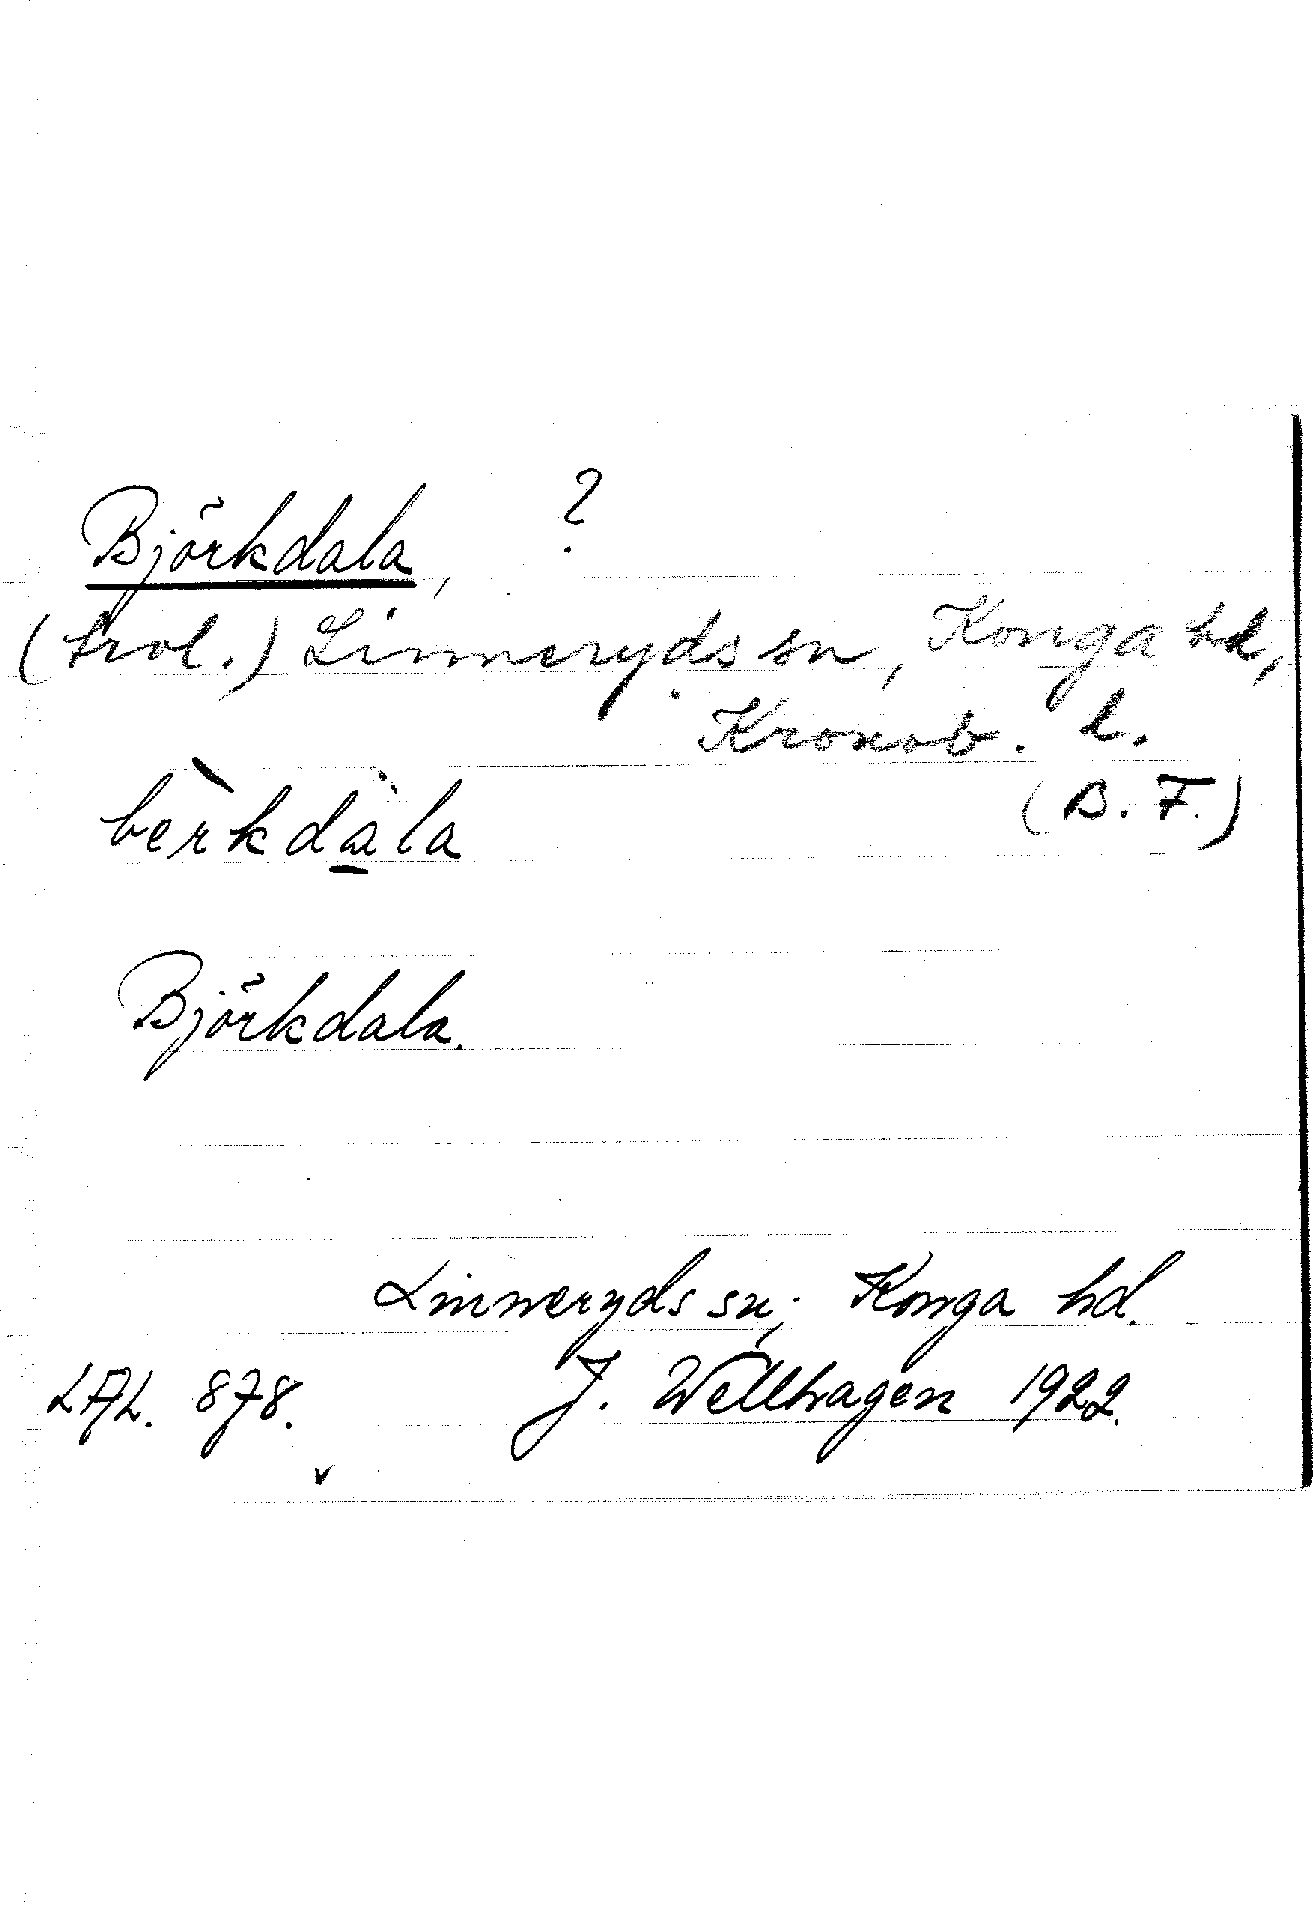 Björkdala, ?
(trol.) Linneryds sn, Konga hd,
Kronob. l.
(B. F.)
bèrkdäla
Björkdala.
Linneryds sn; Konga hd.
LAL. 878. J. Wellhagen 1922.
v